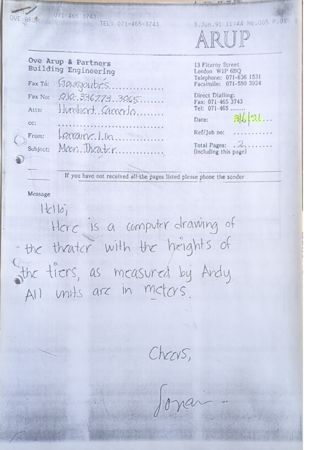 071-465 3743
TEL: 071-465-3743
5.Jun.91 11:44 No.005 P.01
ARUP
Ove Arup & Partners
Building Engineering
13 Fitzroy Street
London W1P 6BQ
Telephone: 071-636 1531
Facsimile: 071-580 3924
Direct Dialling:
Fax: 071-465 3743
Tel: 071-465
Date:
Ref/Job no:
Total Pages: 2
(including this page)
Fax To:
Fax No:
Attn:
cc:
From:
Subject: Theater
If you have not received all the pages listed please phone the sender
Message
Hello,
Here is a computer drawing of
the theater with the heights of
the tiers, as measured by Andy.
All units are in meters.
Cheers,